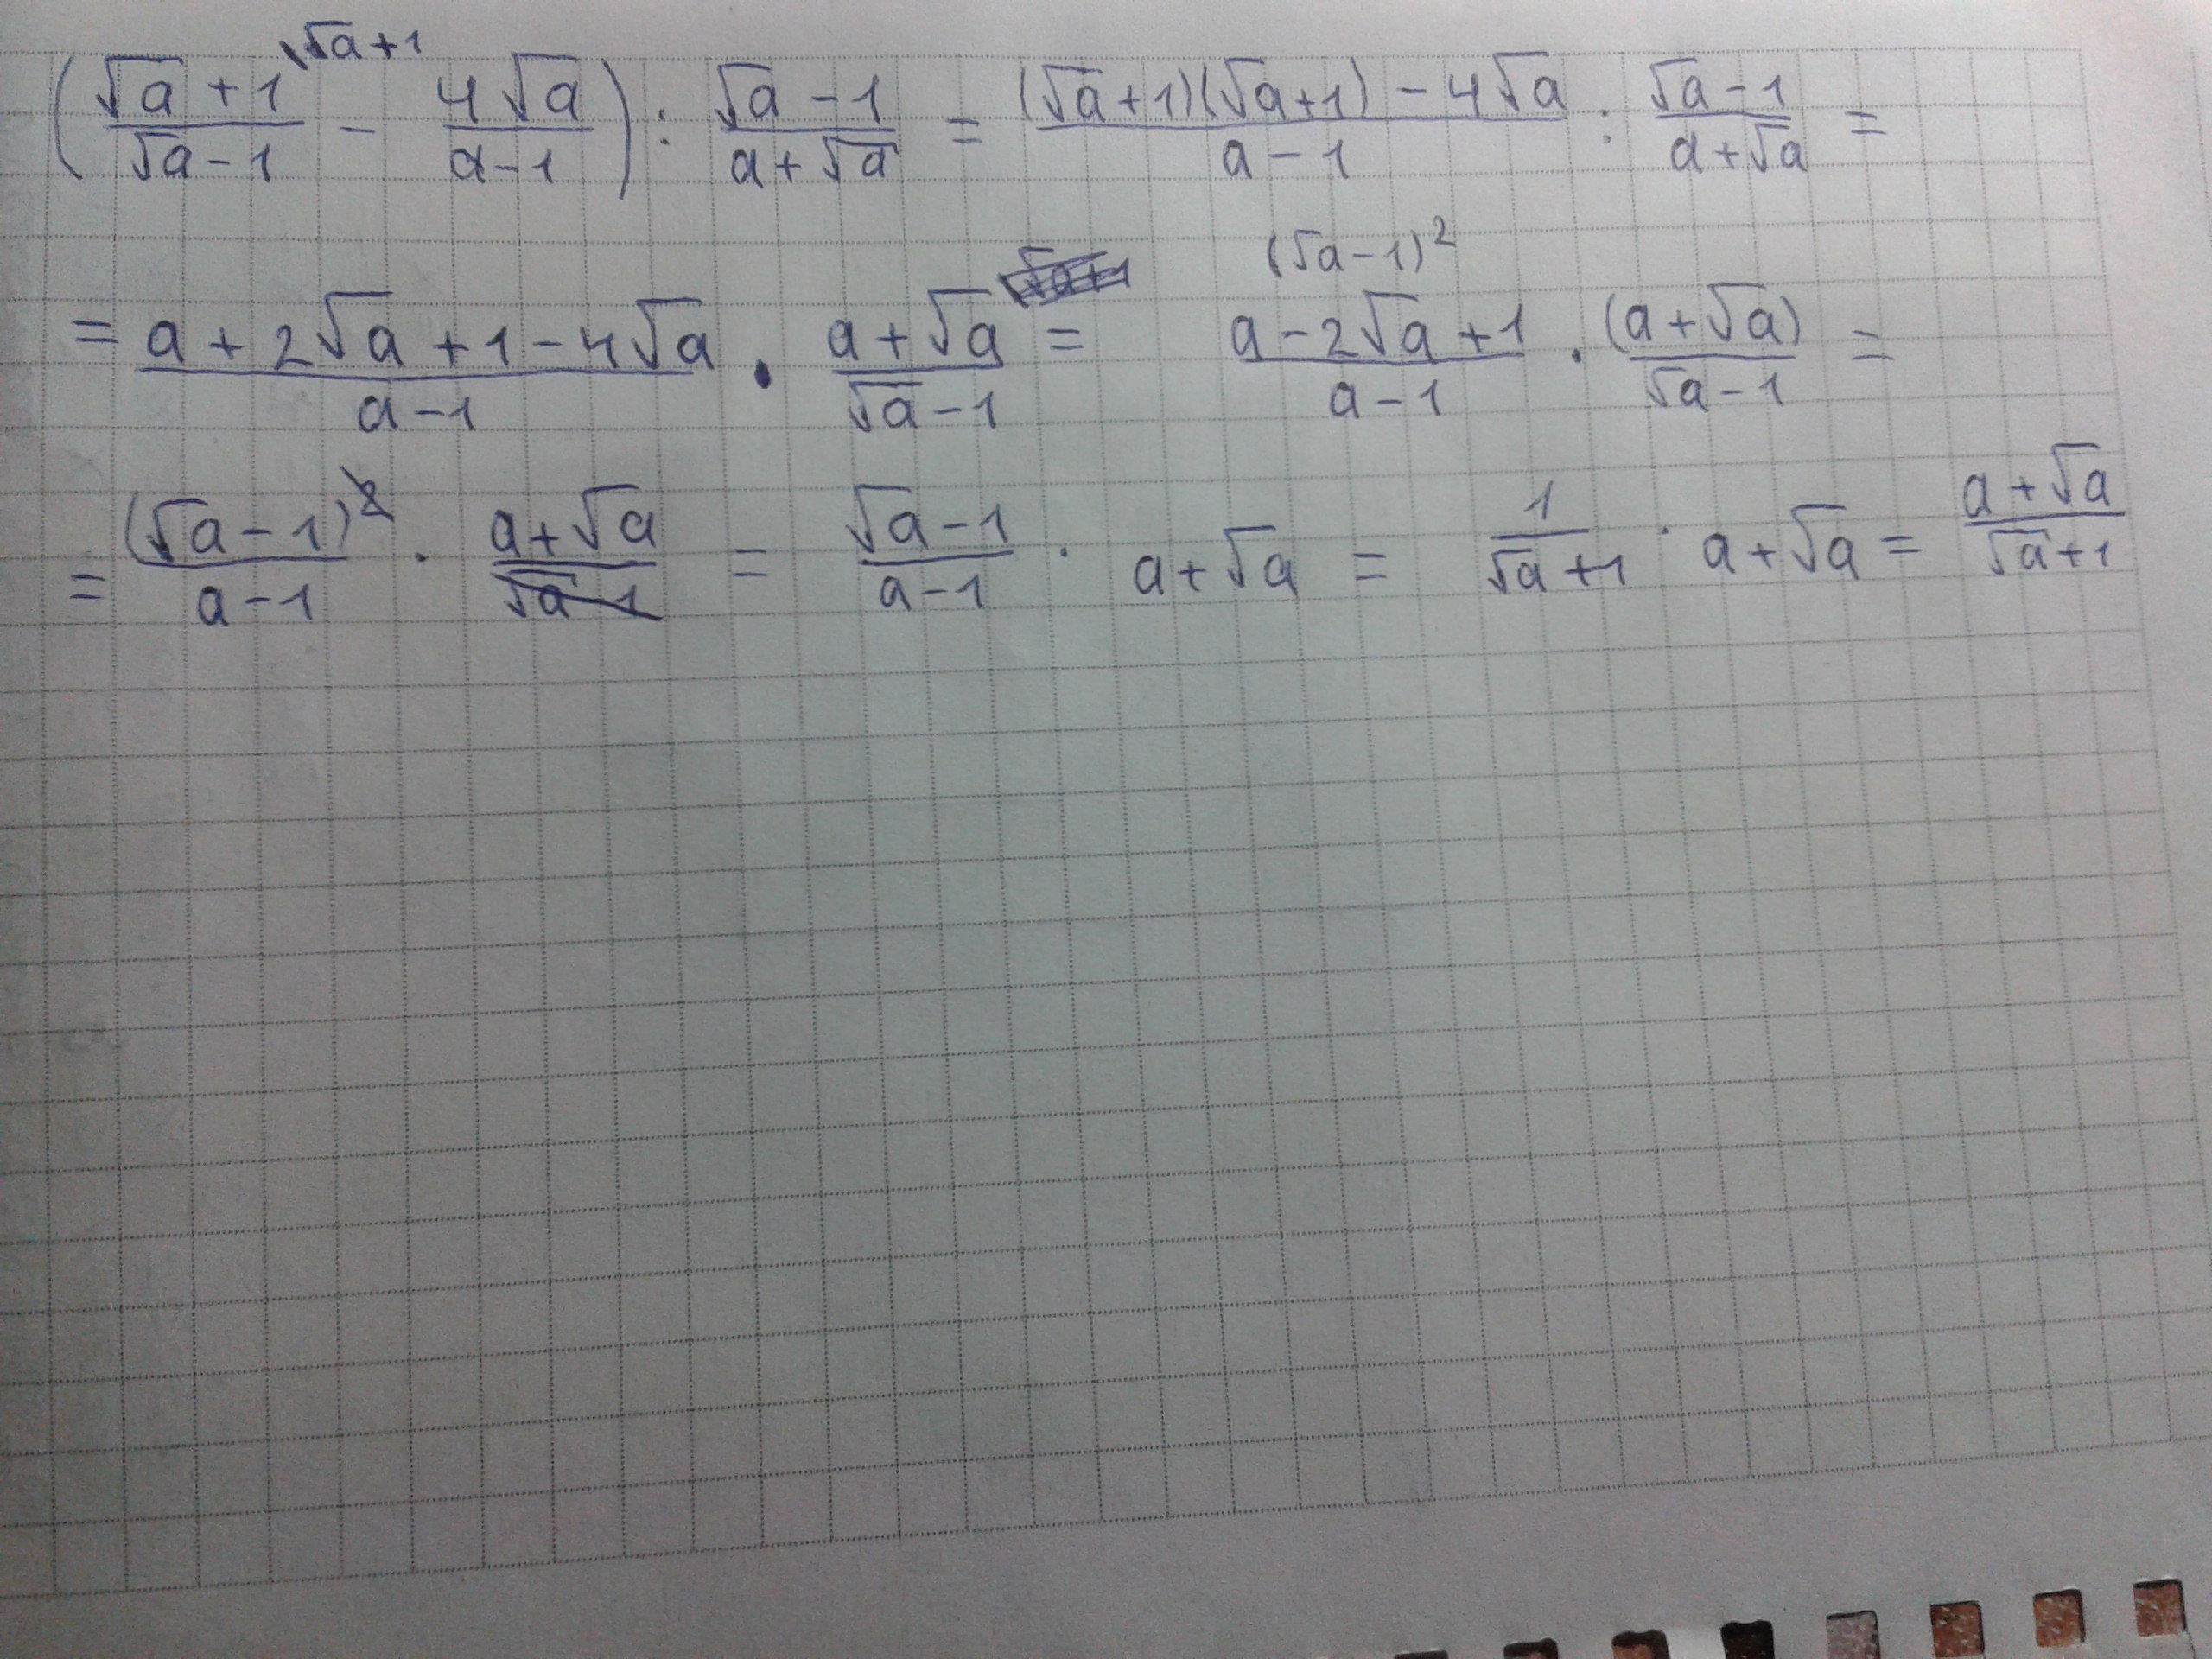 \√a+1
(√a+1/√a-1 - 4√a/a-1) : √a-1/a+√a = (√a+1)(√a+1)-4√a/a-1 : √a-1/a+√a =
(√a-1)²
= a+2√a+1-4√a/a-1 · a+√a/√a-1 = a-2√a+1/a-1 · (a+√a)/√a-1 =
= (√a-1)²/a-1 · a+√a/√a-1 = √a-1/a-1 · a+√a = 1/√a+1 · a+√a = a+√a/√a+1